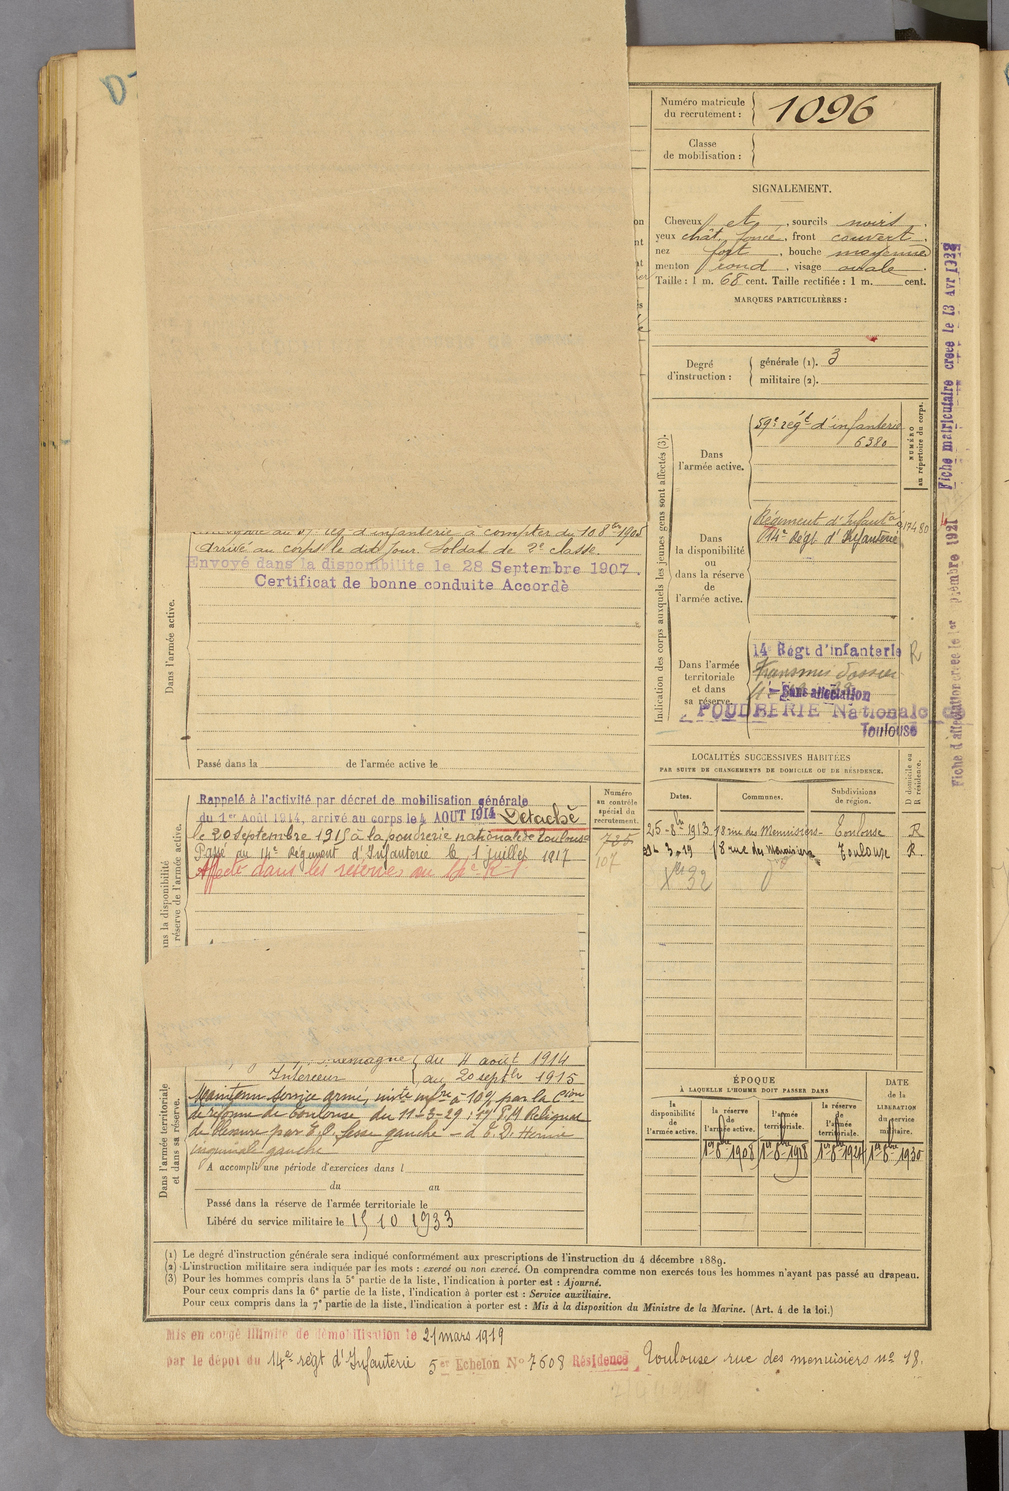 Numéro matricule
du recrutement : 1096
Classe
de mobilisation :
SIGNALEMENT.
Cheveux et , sourcils noirs ,
yeux chât. foncé , front couvert ,
nez fort , bouche moyenne
menton rond , visage ovale .
Taille : 1 m. 68 cent. Taille rectifiée : 1 m. cent.
MARQUES PARTICULIÈRES :
Degré
d'instruction :
générale (1). 3
militaire (2).
Indication des corps auxquels les jeunes gens sont affectés (3).
NUMÉRO
au répertoire du corps.
Dans
l'armée active.
59e régt d'infanterie
6380
Dans
la disponibilité
ou
dans la réserve
de
l'armée active.
Régiment d'Infant
14e Régt d'Infanterie
Dans l'armée
territoriale
et dans
sa réserve.
14e Régt d'infanterie R
Transmis dossier
Sans affectation
POUDRERIE Nationale
Toulouse
Fiche matriculaire créée le 13 Avr 1928
Fiche d'affectation créée le 1er septembre 1921
régt d'infanterie à compter du 10 8bre 1905
Arrivé au corps le dit jour. Soldat de 2e classe.
Envoyé dans la disponibilité le 28 Septembre 1907.
Certificat de bonne conduite Accordé
Dans l'armée active.
Passé dans la de l'armée active le
LOCALITÉS SUCCESSIVES HABITÉES
PAR SUITE DE CHANGEMENTS DE DOMICILE OU DE RÉSIDENCE.
D domicile ou
R résidence.
Dates. Communes. Subdivisions
de région.
25-8bre 1913 18 rue des Menuisiers - Toulouse R
3-19 18 rue des Menuisiers Toulouse R.
Xbre 32
Numéro
au contrôle
spécial du
recrutement.
735
107
Rappelé à l'activité par décret de mobilisation générale
du 1er Août 1914, arrivé au corps le 4 AOUT 1914 Détaché
le 20 septembre 1915 à la poudrerie nationale de Toulouse
Passé au 14e Régiment d'Infanterie le 1 juillet 1917
Affecté dans les réserves au 14e R I
ns la disponibilité
réserve de l'armée active.
Allemagne du 4 août 1914
Intérieur au 20 septbre 1915
Maintenu service armé, invté infre à 10% par la Cion
de réforme de Toulouse du 11-3-29 : 1º/ Reliquat
de blessure par E.O. fesse gauche - 2º Hernie
inguinale gauche
A accompli une période d'exercices dans l
du au
Passé dans la réserve de l'armée territoriale le
Libéré du service militaire le 15 10 1933
Dans l'armée territoriale
et dans sa réserve.
ÉPOQUE
À LAQUELLE L'HOMME DOIT PASSER DANS
DATE
de la
LIBÉRATION
du service
militaire.
la
disponibilité
de
l'armée active.
la réserve
de
l'armée active.
l'armée
territoriale.
la réserve
de
l'armée
territoriale.
1er 8bre 1908 1er 8bre 1918 1er 8bre 1924 1er 8bre 1930
(1) Le degré d'instruction générale sera indiqué conformément aux prescriptions de l'instruction du 4 décembre 1889.
(2) L'instruction militaire sera indiquée par les mots : exercé ou non exercé. On comprendra comme non exercés tous les hommes n'ayant pas passé au drapeau.
(3) Pour les hommes compris dans la 5e partie de la liste, l'indication à porter est : Ajourné.
Pour ceux compris dans la 6e partie de la liste, l'indication à porter est : Service auxiliaire.
Pour ceux compris dans la 7e partie de la liste, l'indication à porter est : Mis à la disposition du Ministre de la Marine. (Art. 4 de la loi.)
Mis en congé illimité de démobilisation le 21 mars 1919
par le dépôt du 14e régt d'Infanterie 5er Echelon No 7608 Résidence Toulouse rue des menuisiers no 18.